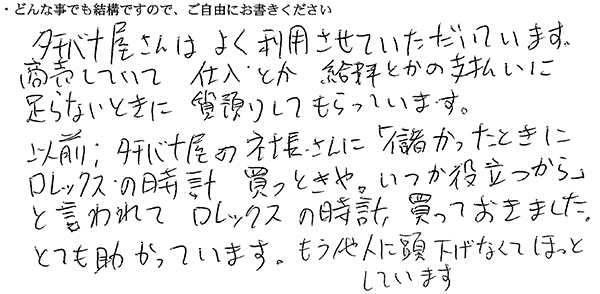 ・どんな事でも結構ですので、ご自由にお書きください
タチバナ屋さんは よく利用させていただいています。
商売していて 仕入とか 給料とかの支払いに
足らないときに 質預りしてもらっています。
以前、タチバナ屋の社長さんに「儲かったときに
ロレックスの時計 買っときや。いつか役立つから」
と言われて ロレックスの時計 買っておきました。
とても助かっています。もう他人に頭下げなくてほっと
しています